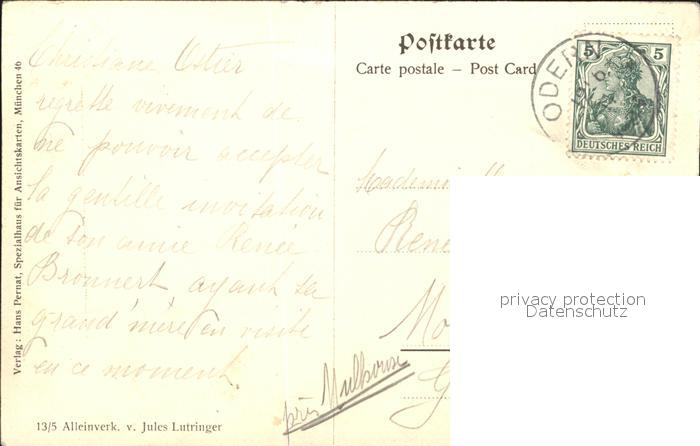 Postkarte
Carte postale – Post Card
ODERN
5 5
DEUTSCHES REICH
Verlag: Hans Pernat, Spezialhaus für Ansichtskarten, München 46
Christiane Ostier
regrette vivement de
ne pouvoir accepter
la gentille invitation
de son amie Renée
Bronnert ayant sa
grand'mère en visite
en ce moment.
Mademoi
René
Mo
près Mulhouse
privacy protection
Datenschutz
13/5 Alleinverk. v. Jules Lutringer